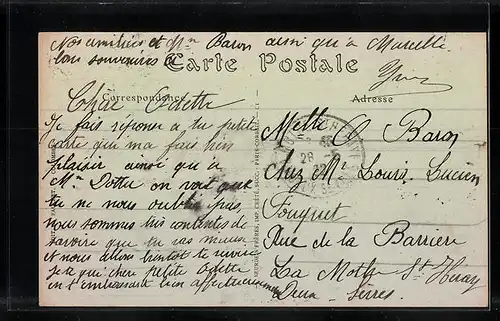 Nos amitiés et Mr Baron ainsi qu'à Marcelle
bons souvenirs
Carte Postale
Correspondance
Adresse
Chère Odette
Je fais réponse a ta petite
carte que ma fait bien
plaisir ainsi que a
M. Dottu on voit que
tu ne nous oublie pas,
nous sommes très contentes de
savoire que tu vas mieux
et nous allons bientot te revoir
petite Odette
en t'embrassant bien affectueusement
Melle O Baron
Chez Mr Louis Lucien
Fouquet
Rue de la Barriere
La Mothe St Heray
Deux-Sèvres.